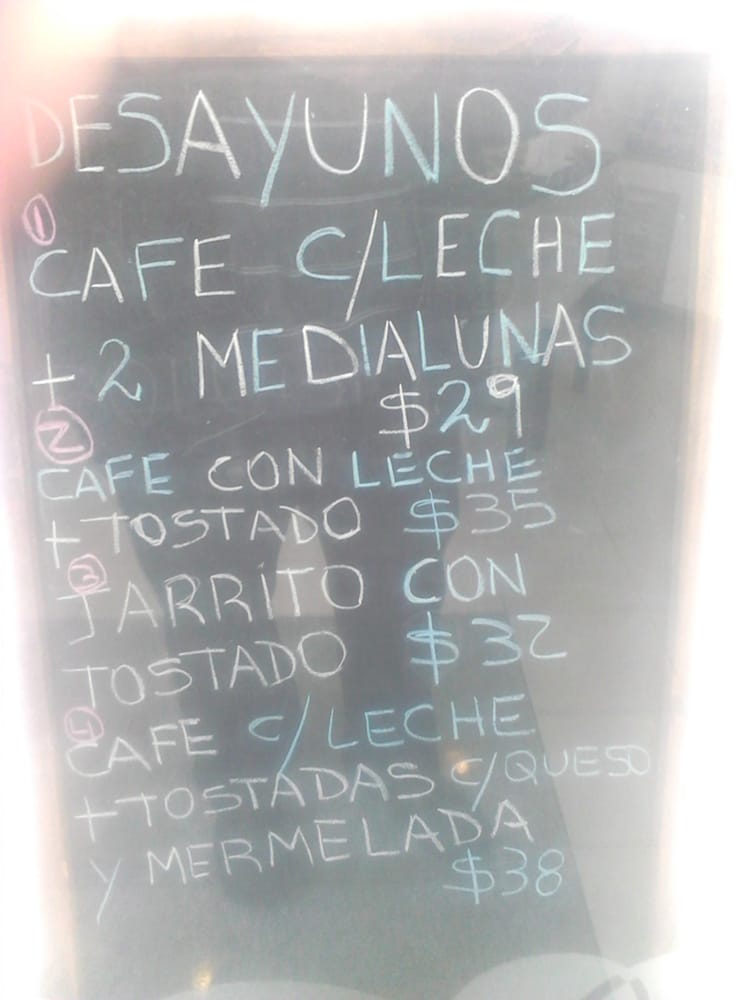 DESAYUNOS
1
CAFE C/LECHE
+ 2 MEDIALUNAS
$29
2
CAFE CON LECHE
+ TOSTADO $35
3
JARRITO CON
TOSTADO $32
4
CAFE C/LECHE
+ TOSTADAS C/QUESO
Y MERMELADA
$38